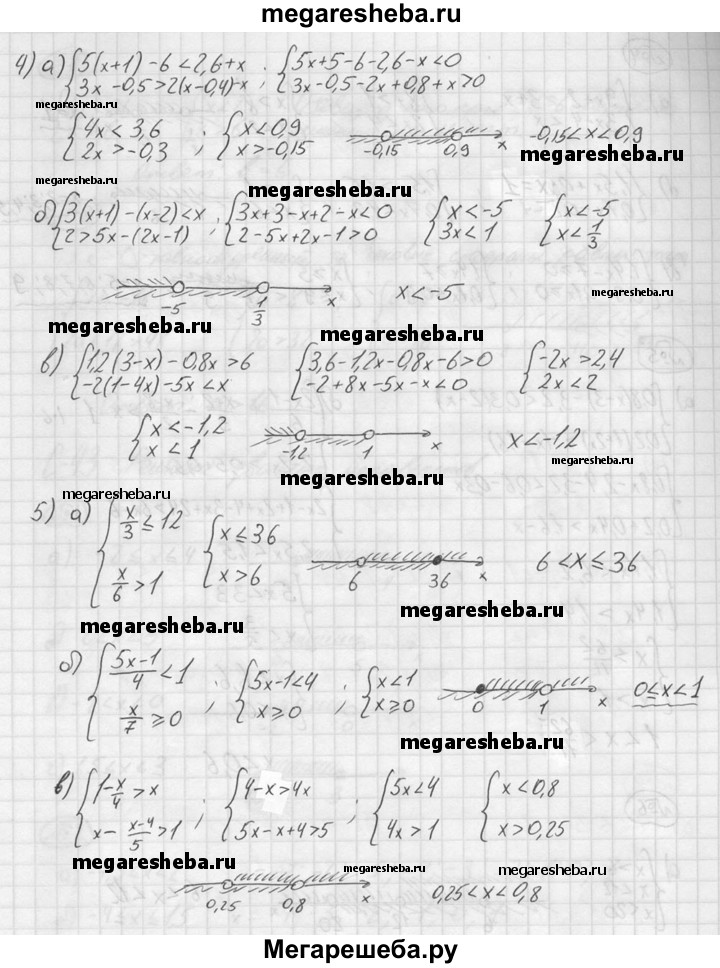 megaresheba.ru
4) а) { 5(x+1) - 6 < 2,6 + x ; { 5x + 5 - 6 - 2,6 - x < 0
{ 3x - 0,5 > 2(x - 0,4) - x ; { 3x - 0,5 - 2x + 0,8 + x > 0
megaresheba.ru
{ 4x < 3,6 ; { x < 0,9
{ 2x > -0,3 ; { x > -0,15
-0,15 0,9 x
-0,15 < x < 0,9
megaresheba.ru
megaresheba.ru
megaresheba.ru
б) { 3(x+1) - (x-2) < x ; { 3x + 3 - x + 2 - x < 0 { x < -5 { x < -5
{ 2 > 5x - (2x-1) ; { 2 - 5x + 2x - 1 > 0 { 3x < 1 { x < 1/3
-5 1/3 x
x < -5
megaresheba.ru
megaresheba.ru
megaresheba.ru
в) { 1,2(3-x) - 0,8x > 6 { 3,6 - 1,2x - 0,8x - 6 > 0 { -2x > 2,4
{ -2(1-4x) - 5x < x { -2 + 8x - 5x - x < 0 { 2x < 2
{ x < -1,2
{ x < 1
-1,2 1 x
x < -1,2
megaresheba.ru
megaresheba.ru
megaresheba.ru
5) а) { x/3 ≤ 12 { x ≤ 36
{ x/6 > 1 { x > 6
6 36 x
6 < x ≤ 36
megaresheba.ru
megaresheba.ru
б) { (5x-1)/4 < 1 ; { 5x - 1 < 4 ; { x < 1
{ x/7 ≥ 0 ; { x ≥ 0 ; { x ≥ 0
0 1 x
0 ≤ x < 1
megaresheba.ru
в) { 1 - x/4 > x ; { 4 - x > 4x ; { 5x < 4 { x < 0,8
{ x - (x-4)/5 > 1 ; { 5x - x + 4 > 5 ; { 4x > 1 { x > 0,25
megaresheba.ru
megaresheba.ru
megaresheba.ru
0,25 0,8 x
0,25 < x < 0,8
Мегарешеба.ру